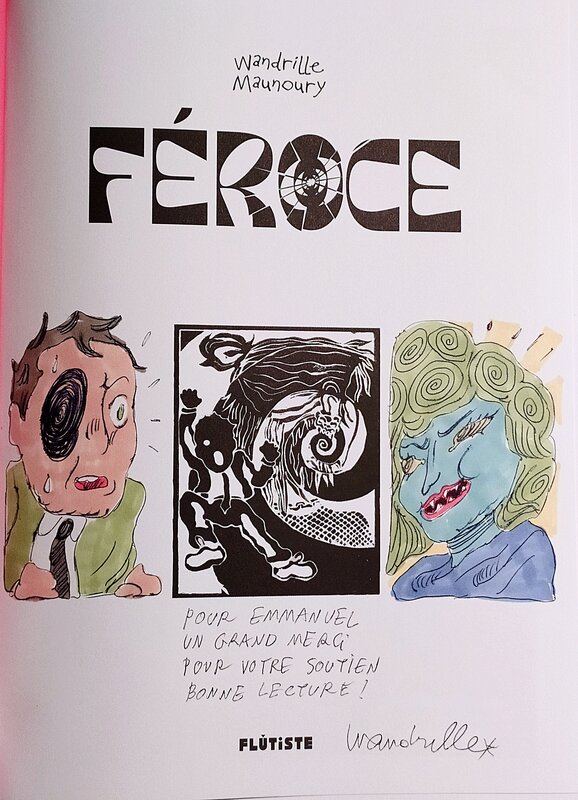 Wandrille
Maunoury
FÉROCE
POUR EMMANUEL
UN GRAND MERCI
POUR VOTRE SOUTIEN
BONNE LECTURE !
FLÛTiSTE
Wandrille